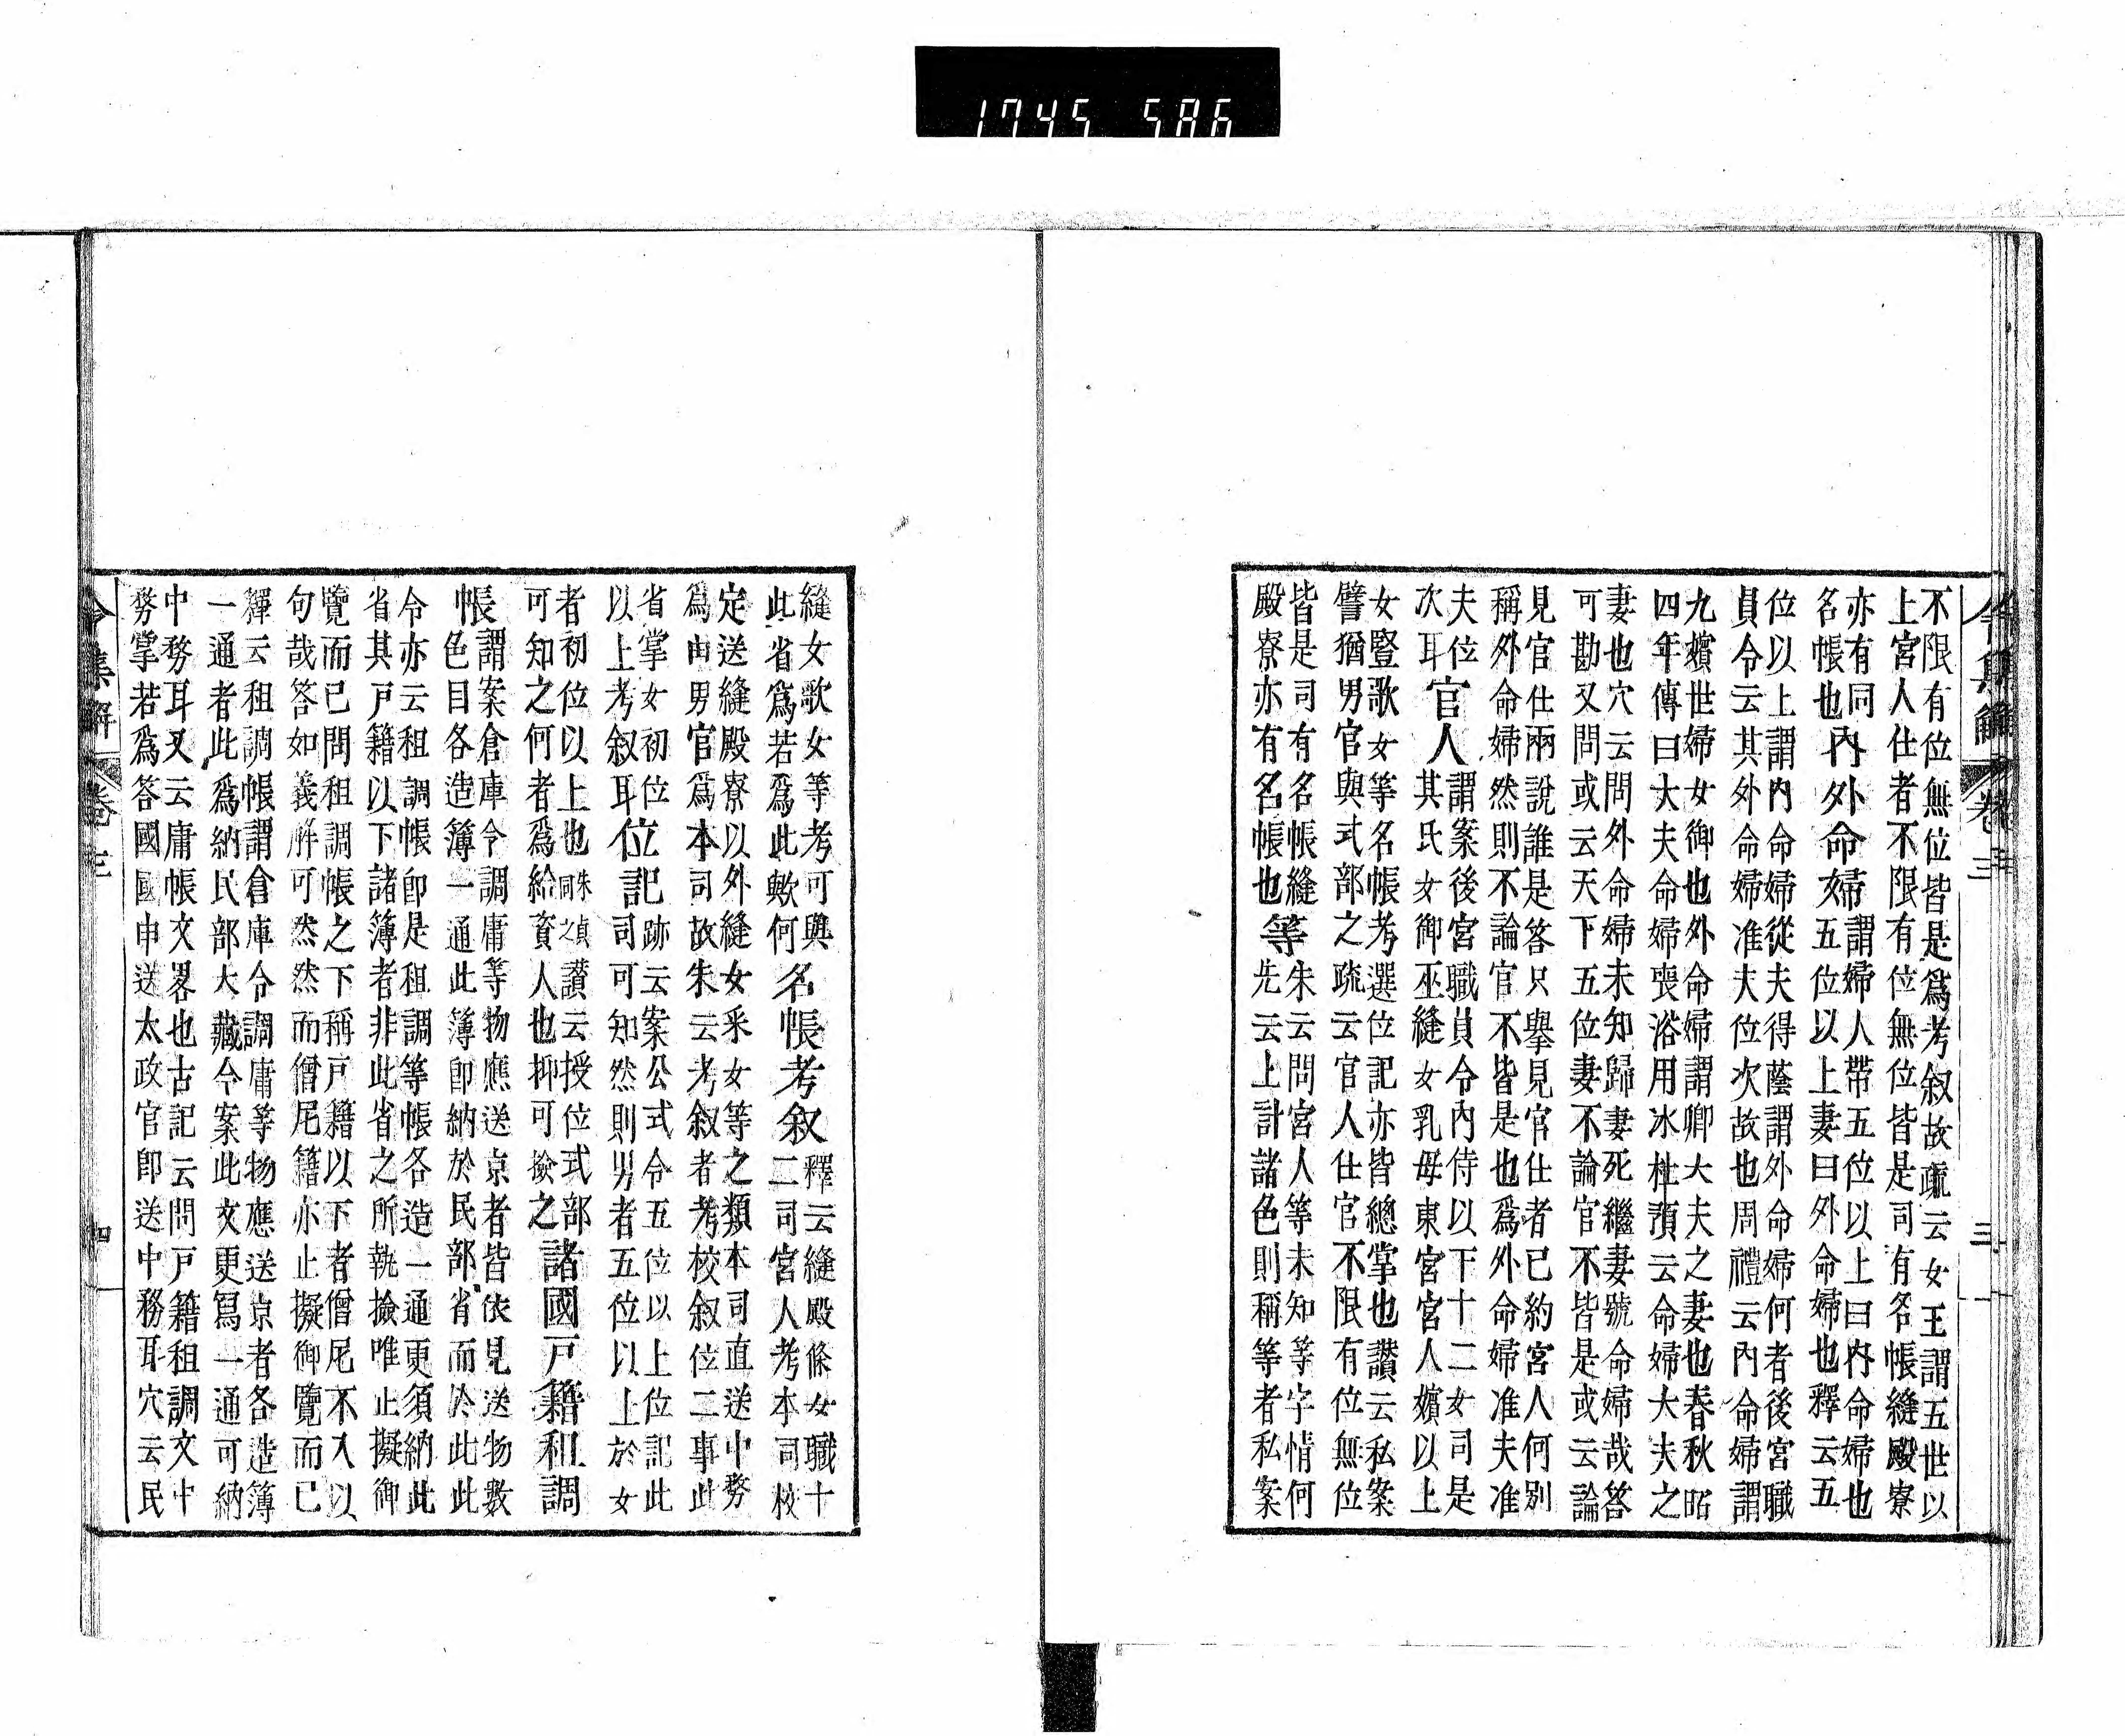 令集解 卷三 三
不限有位無位皆是爲考叙故疏云女王謂五世以
上宮人仕者不限有位無位皆是司有名帳縫殿寮
亦有同
名帳也
內外命婦
謂婦人帶五位以上曰內命婦也
五位以上妻曰外命婦也釋云五
位以上謂內命婦從夫得蔭謂外命婦何者後宮職
員令云其外命婦准夫位次故也周禮云內命婦謂
九嬪世婦女御也外命婦謂卿大夫之妻也春秋昭
四年傳曰大夫命婦喪浴用冰杜預云命婦大夫之
妻也穴云問外命婦未知歸妻死繼妻號命婦哉答
可勘又問或云天下五位妻不論官不皆是或云論
見官仕兩說誰是答只擧見官仕者已約宮人何別
稱外命婦然則不論官不皆是也爲外命婦准夫准
夫位
次耳
官人
謂案後宮職員令內侍以下十二女司是
其氏女御巫縫女乳母東宮宮人嬪以上
女豎歌女等名帳考選位記亦皆總掌也讃云私案
譬猶男官與式部之疏云官人仕官不限有位無位
皆是司有名帳縫
殿寮亦有名帳也
等
朱云問宮人等未知等字情何
先云上計諸色則稱等者私案
縫女歌女等考可與
此省爲若爲此歟何
名帳考叙
釋云縫殿條女職十
二司宮人考本司校
定送縫殿寮以外縫女釆女等之類本司直送中務
爲由男官爲本司故朱云考叙者考校叙位二事此
省掌女初位
以上考叙耳
位記
跡云案公式令五位以上位記此
司可知然則男者五位以上於女
者初位以上也朱貞同之讃云授位式部
可知之何者爲給資人也抑可撿之
諸國戸籍租調
帳
謂案倉庫令調庸等物應送京者皆依見送物數
色目各造簿一通此簿卽納於民部省而於此此
令亦云租調帳卽是租調等帳各造一通更須納此
省其戸籍以下諸簿者非此省之所執撿唯止擬御
覽而已問租調帳之下稱戸籍以下者僧尼不入以
句哉答如義解可然然而僧尼籍亦止擬御覽而已
釋云租調帳謂倉庫令調庸等物應送京者各造簿
一通者此爲納民部大藏令案此文更寫一通可納
中務耳又云庸帳文畧也古記云問戸籍租調文中
務掌若爲答國國申送太政官卽送中務耳穴云民
令集解 卷三 四
1745 586